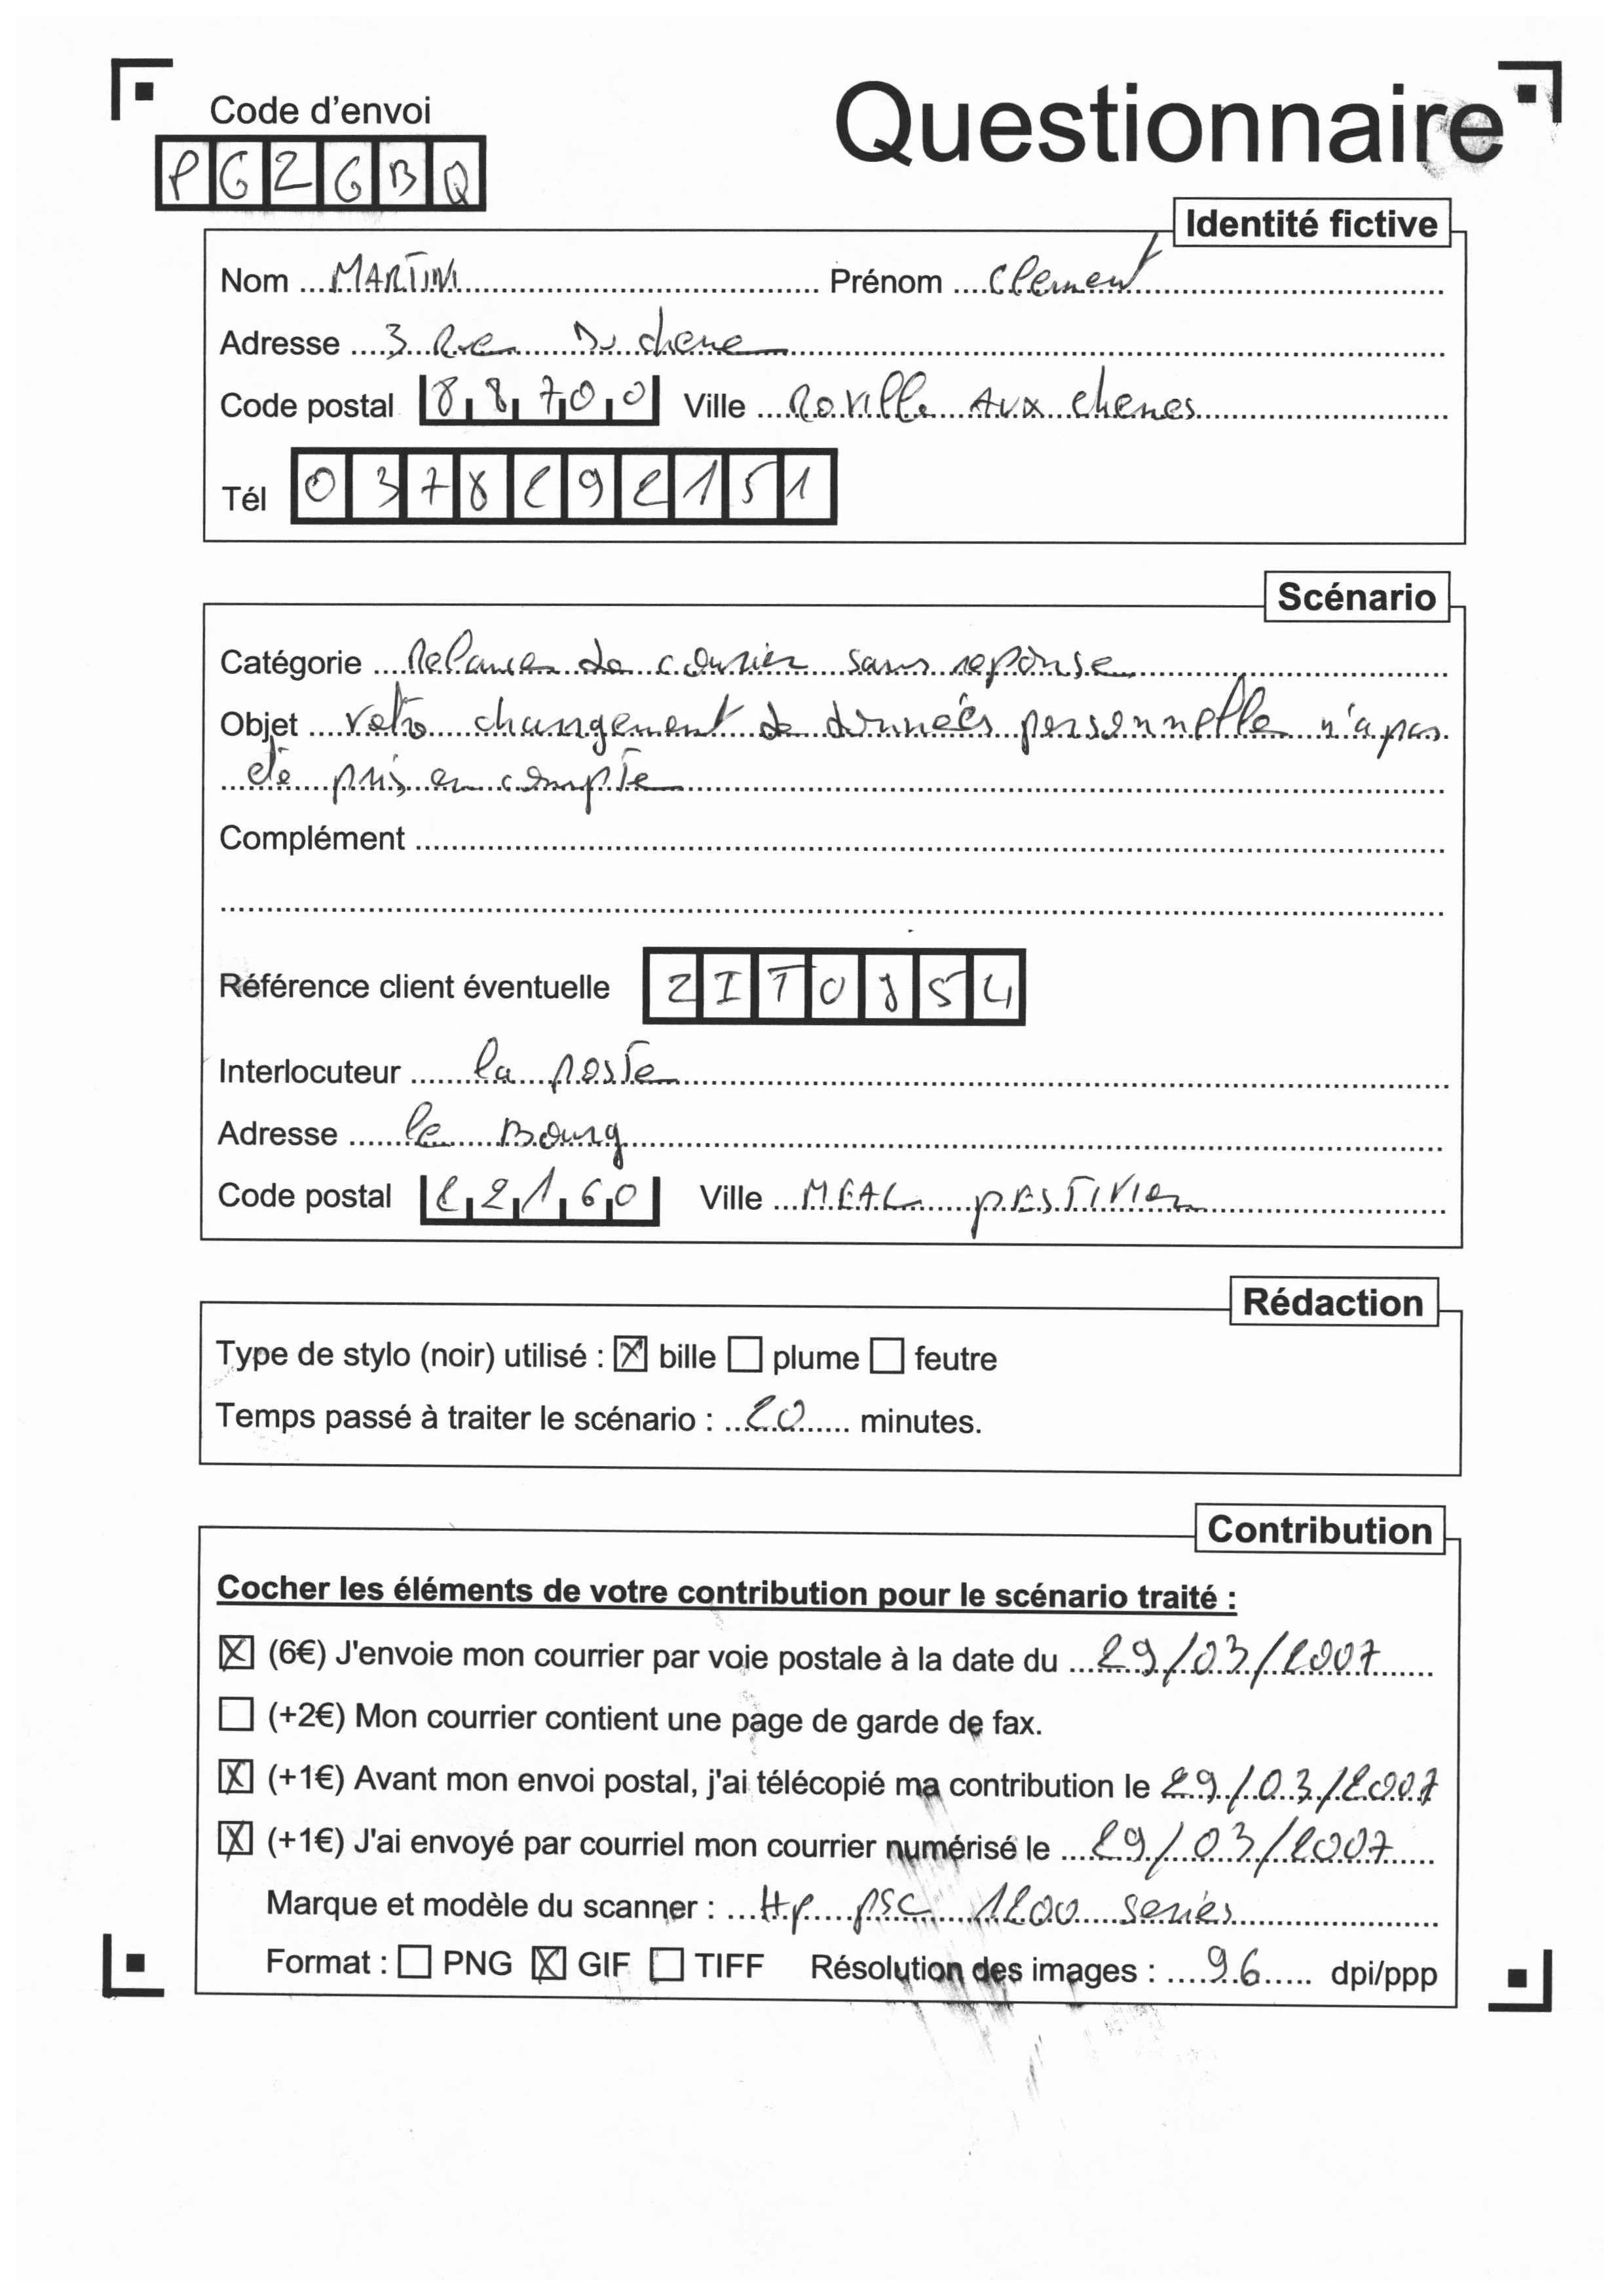 Code d'envoi
Questionnaire
PGZGBQ
Identité fictive
Nom MARTIN Prénom Clement
Adresse 3 Rue Du chene
Code postal 88700 Ville Roville Aux chenes
Tél 0378292151
Scénario
Catégorie Relance de courrier sans reponse
Objet Votre changement de données personnelle n'a pas
été pris en compte
Complément
Référence client éventuelle ZITO954
Interlocuteur la poste
Adresse le Bourg
Code postal 22160 Ville MEAL pESTIVIEN
Rédaction
Type de stylo (noir) utilisé : ☒ bille ☐ plume ☐ feutre
Temps passé à traiter le scénario : 20 minutes.
Contribution
Cocher les éléments de votre contribution pour le scénario traité :
☒ (6€) J'envoie mon courrier par voie postale à la date du 29/03/2007
☐ (+2€) Mon courrier contient une page de garde de fax.
☒ (+1€) Avant mon envoi postal, j'ai télécopié ma contribution le 29/03/2007
☒ (+1€) J'ai envoyé par courriel mon courrier numérisé le 29/03/2007
Marque et modèle du scanner : Hp psc 1200 series
Format : ☐ PNG ☒ GIF ☐ TIFF Résolution des images : 96 dpi/ppp